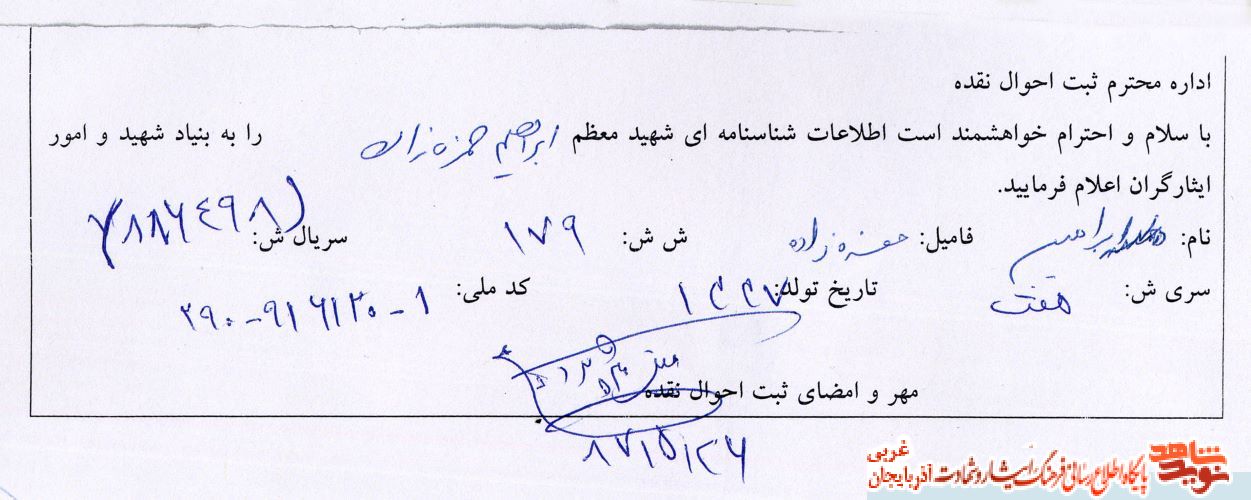 اداره محترم ثبت احوال نقده
با سلام و احترام خواهشمند است اطلاعات شناسنامه ای شهید معظم ابراهیم حمزه زاده را به بنیاد شهید و امور
ایثارگران اعلام فرمایید.
نام: ابراهیم فامیل: حمزه زاده ش ش: ۱۷۹ سریال ش:
سری ش: هفت تاریخ تولد: ۱۳۴۷ کد ملی: ۲۹۰-۹۱۶۱۲۰-۱
مهر و امضای ثبت احوال نقده
نوید شاهد پایگاه اطلاع رسانی فرهنگ ایثار و شهادت آذربایجان غربی